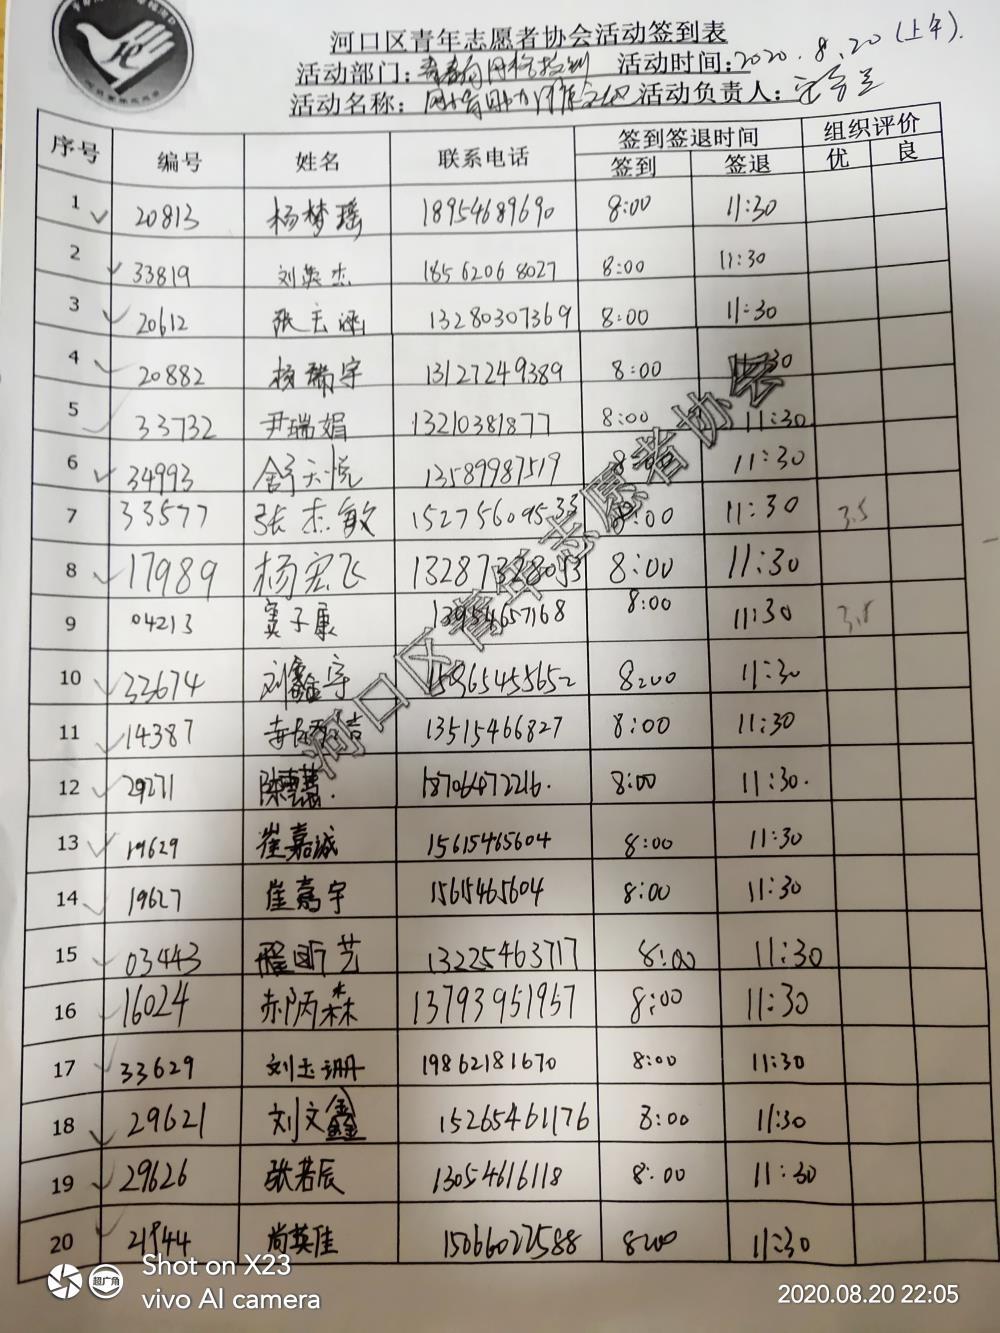 河口区青年志愿者协会活动签到表
活动部门: 活动时间: 2020.8.20(上午).
活动名称: 活动负责人:
序号 编号 姓名 联系电话 签到签退时间 组织评价
签到 签退 优 良
1 20813 杨梦瑶 18954689690 8:00 11:30
2 33819 刘英杰 18562068027 8:00 11:30
3 20612 张玉涵 13280307369 8:00 11:30
4 20882 杨瑞宇 13127249389 8:00 11:30
5 33732 尹瑞娟 13210381877 8:00 11:30
6 34993 舒天悦 13589987519 8:00 11:30
7 33577 张杰敏 15275609533 8:00 11:30 3.5
8 17989 杨宏飞 8:00 11:30
9 04213 窦子康 13954657168 8:00 11:30 3.5
10 33674 刘鑫宇 8:00 11:30
11 14387 13515466827 8:00 11:30
12 29271 18706472216. 8:00 11:30.
13 19629 崔嘉诚 15615465604 8:00 11:30
14 19627 崔嘉宇 15615465604 8:00 11:30
15 03443 艺 13225463717 8:00 11:30
16 16024 郝丙森 13793951957 8:00 11:30
17 33629 刘玉珊 19862181670 8:00 11:30
18 29621 刘文鑫 15265461176 8:00 11:30
19 29626 张若辰 13054616118 8:00 11:30
20 21944 尚英佳 15066022588 8:00 11:30
河口区青年志愿者协会
Shot on X23
超广角
vivo AI camera
2020.08.20 22:05